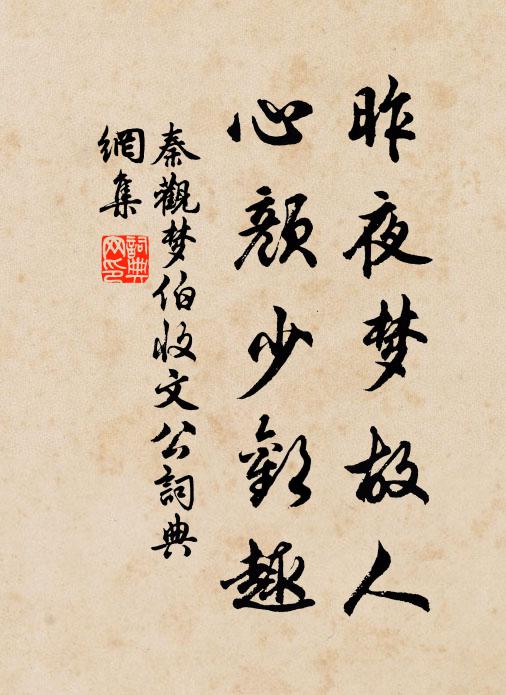 昨夜梦故人
心颜少歡趣
秦觀梦伯收文公詞典
網集
詞典网印